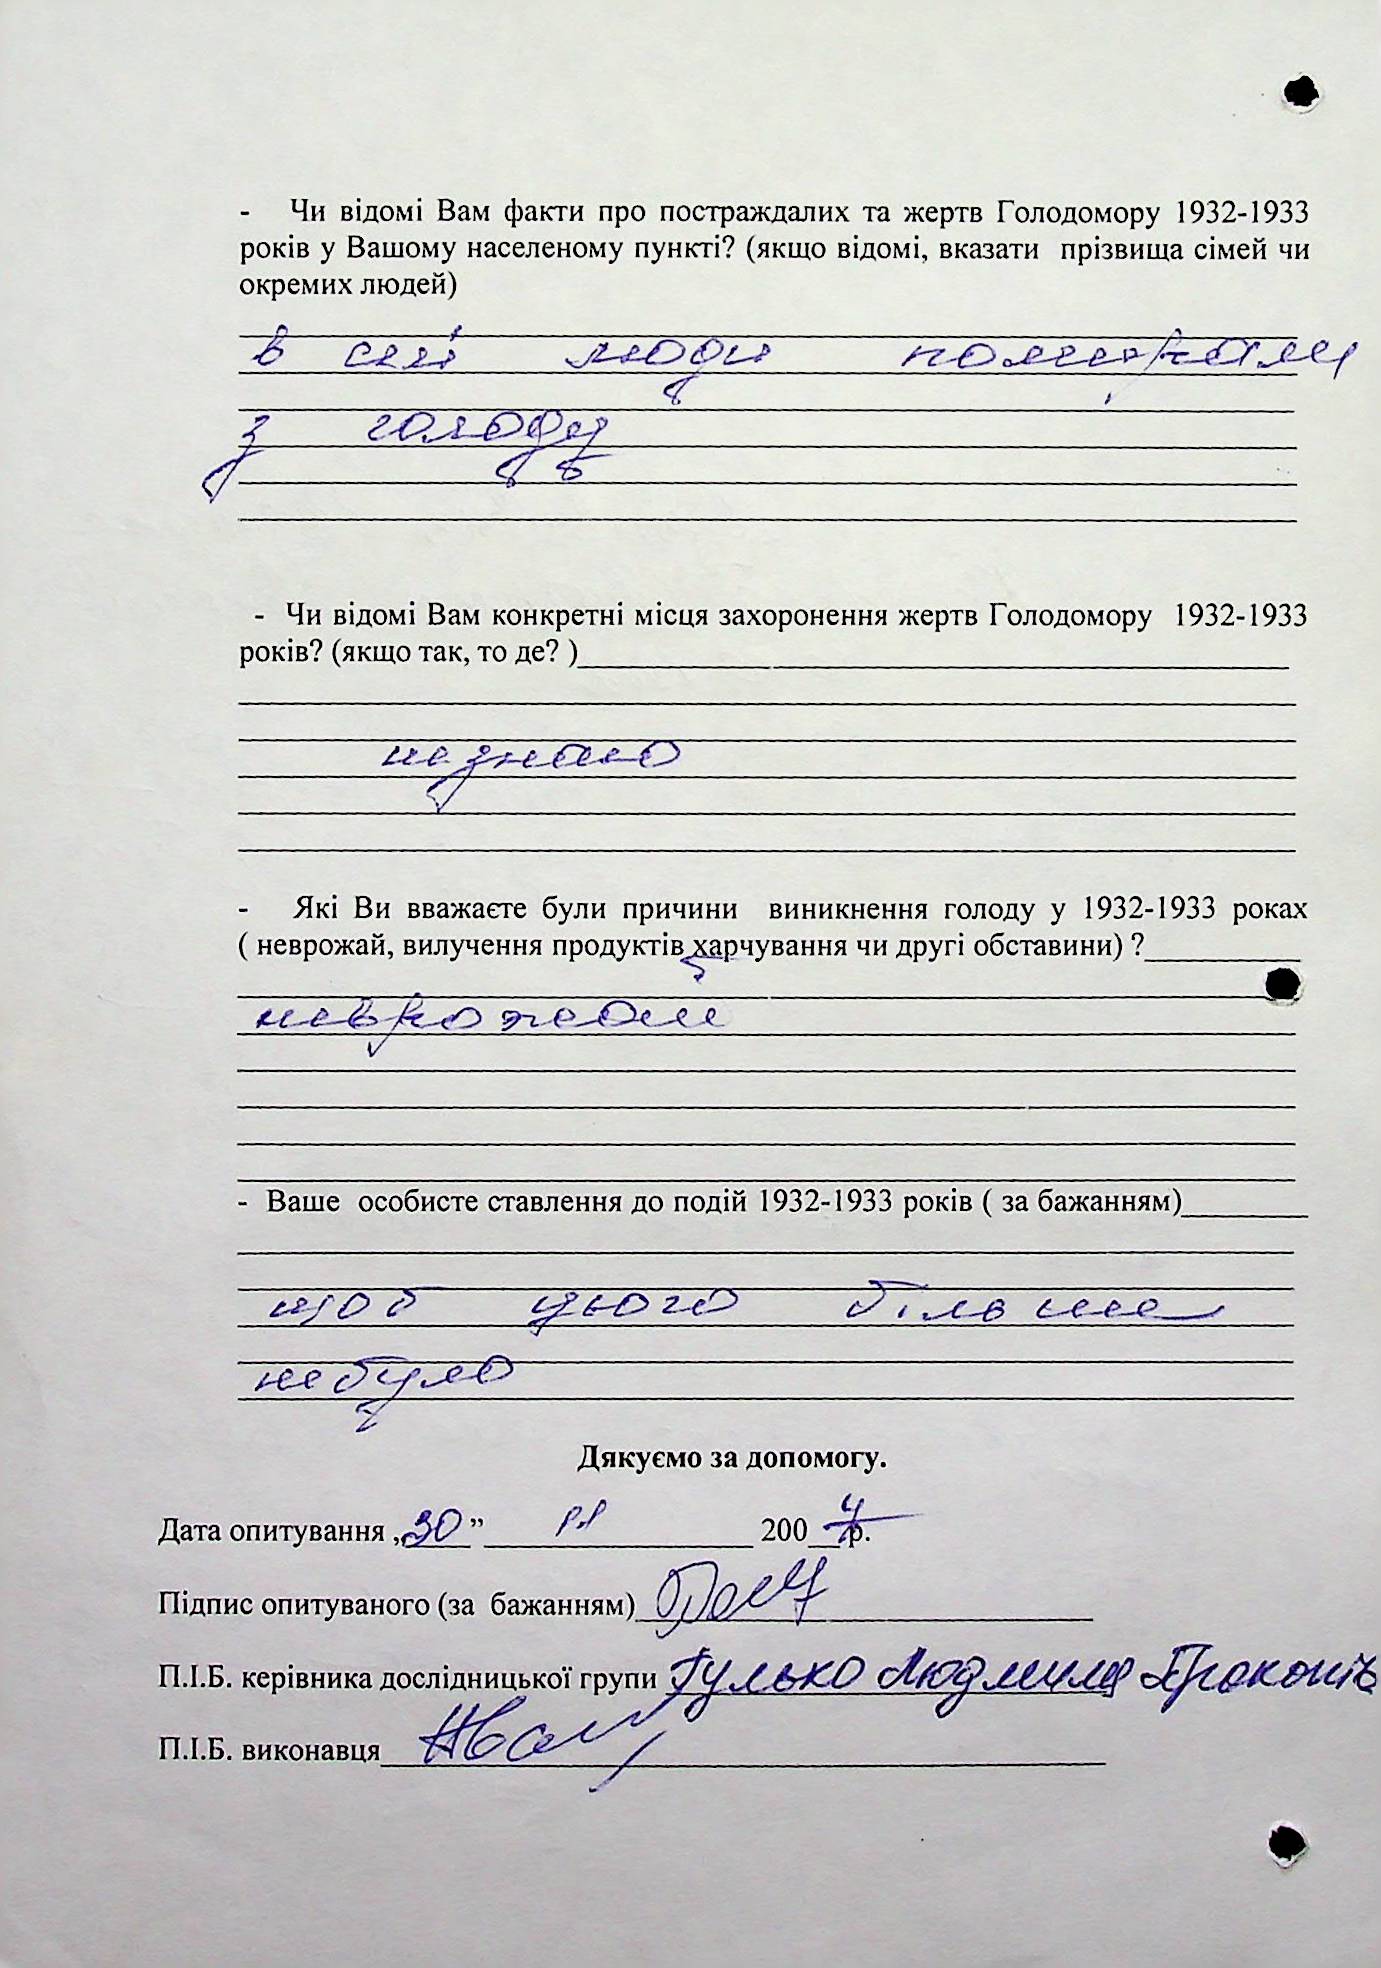 - Чи відомі Вам факти про постраждалих та жертв Голодомору 1932-1933
років у Вашому населеному пункті? (якщо відомі, вказати прізвища сімей чи
окремих людей)
в селі люди помирали
з голоду
- Чи відомі Вам конкретні місця захоронення жертв Голодомору 1932-1933
років? (якщо так, то де? )
незнаю
- Які Ви вважаєте були причини виникнення голоду у 1932-1933 роках
( неврожай, вилучення продуктів харчування чи другі обставини) ?
неврожаї
- Ваше особисте ставлення до подій 1932-1933 років ( за бажанням)
щоб цього більше
небуло
Дякуємо за допомогу.
Дата опитування „30” 11 200 р.
Підпис опитуваного (за бажанням)
П.І.Б. керівника дослідницької групи Гулько Людмила
П.І.Б. виконавця